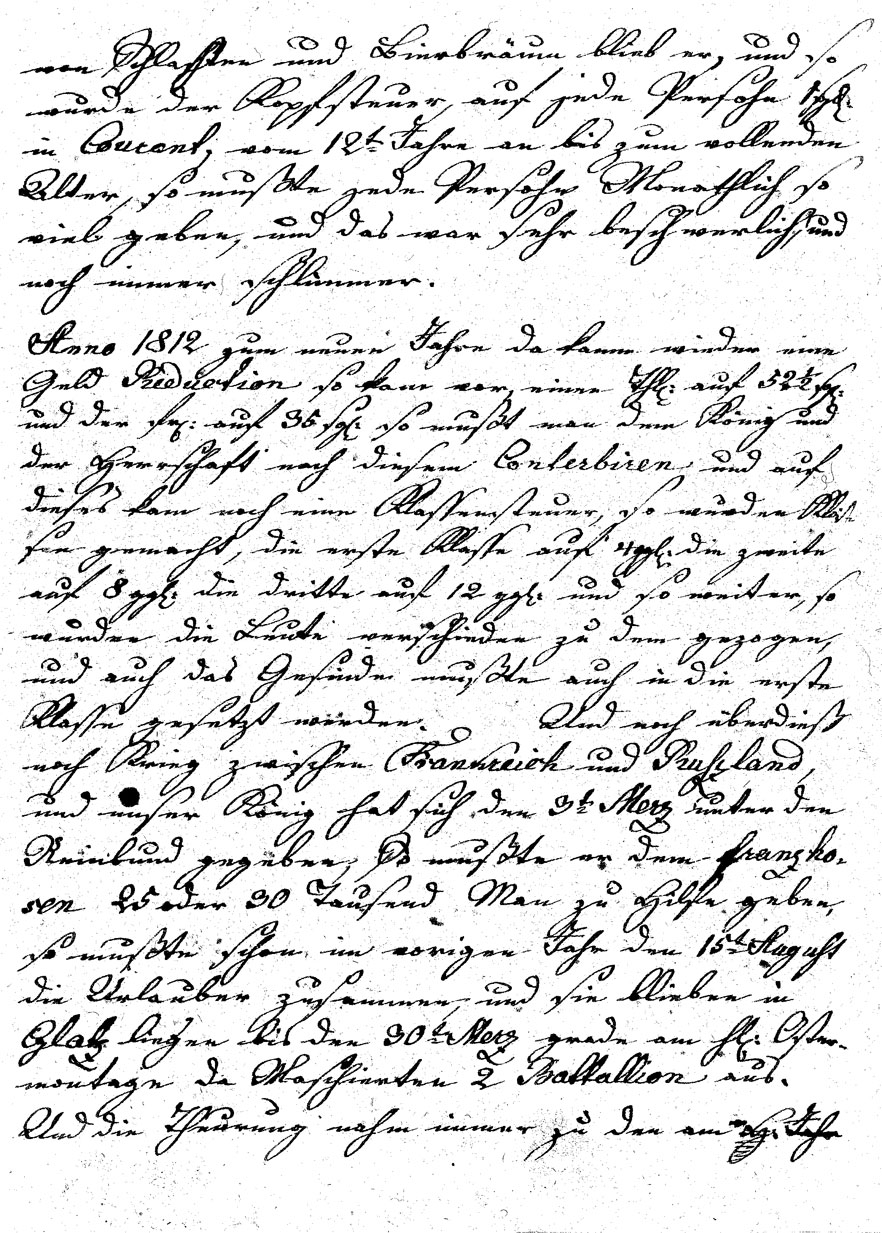 von Schlachten und Bierbräuen blieb er, und so
wurde der Kopfsteuer, auf jede Persohn
in Courent, vom 12t Jahre an bis zum vollenden
Alter, so mußte jede Persohn Monathlich so
viel geben, und das war sehr beschwerlich, und
noch immer schlimmer.
Anno 1812 zum neuen Jahre da kamm wieder eine
Geld Reduction so kam vor, einen Thl: auf 52½ sgl:
und der fl: auf 35 sgl: so mußt man dem König und
der Herrschaft nach diesem Conterbiren und auf
dieses kam noch eine Klassensteuer, so wurden Klas-
sen gemacht, die erste Klasse auf 4 ggl: die zweite
auf 8 ggl: die dritte auf 12 ggl: und so weiter, so
wurden die Leute verschieden zu dem gezogen,
und auch das Gesinde mußte auch in die erste
Klasse gesetzt werden. Und noch überdieß
noch Krieg zwischen Frannreich und Rußland,
und unser König hat sich den 3t Merz unter den
Reinbund gegeben, So mußte er dem franzho-
sen 25 oder 30 Tausend Man zu Hilfe geben,
so mußte schon im vorigen Jahr den 15t August
die Urlauber zusammen, und sie blieben in
Glatz liegen bis den 30t Merz grade am hl: Oster-
montage da Maschierten 2 Battallion aus.
Und die Theurung nahm immer zu den am Jahr